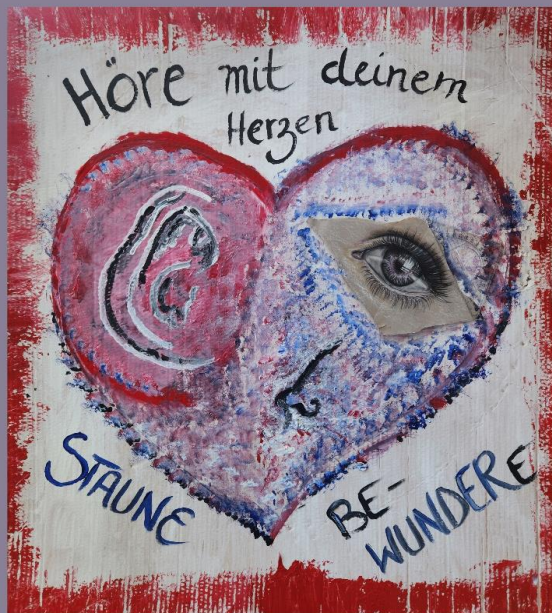 Höre mit deinem
Herzen
STAUNE
BE-
WUNDERE